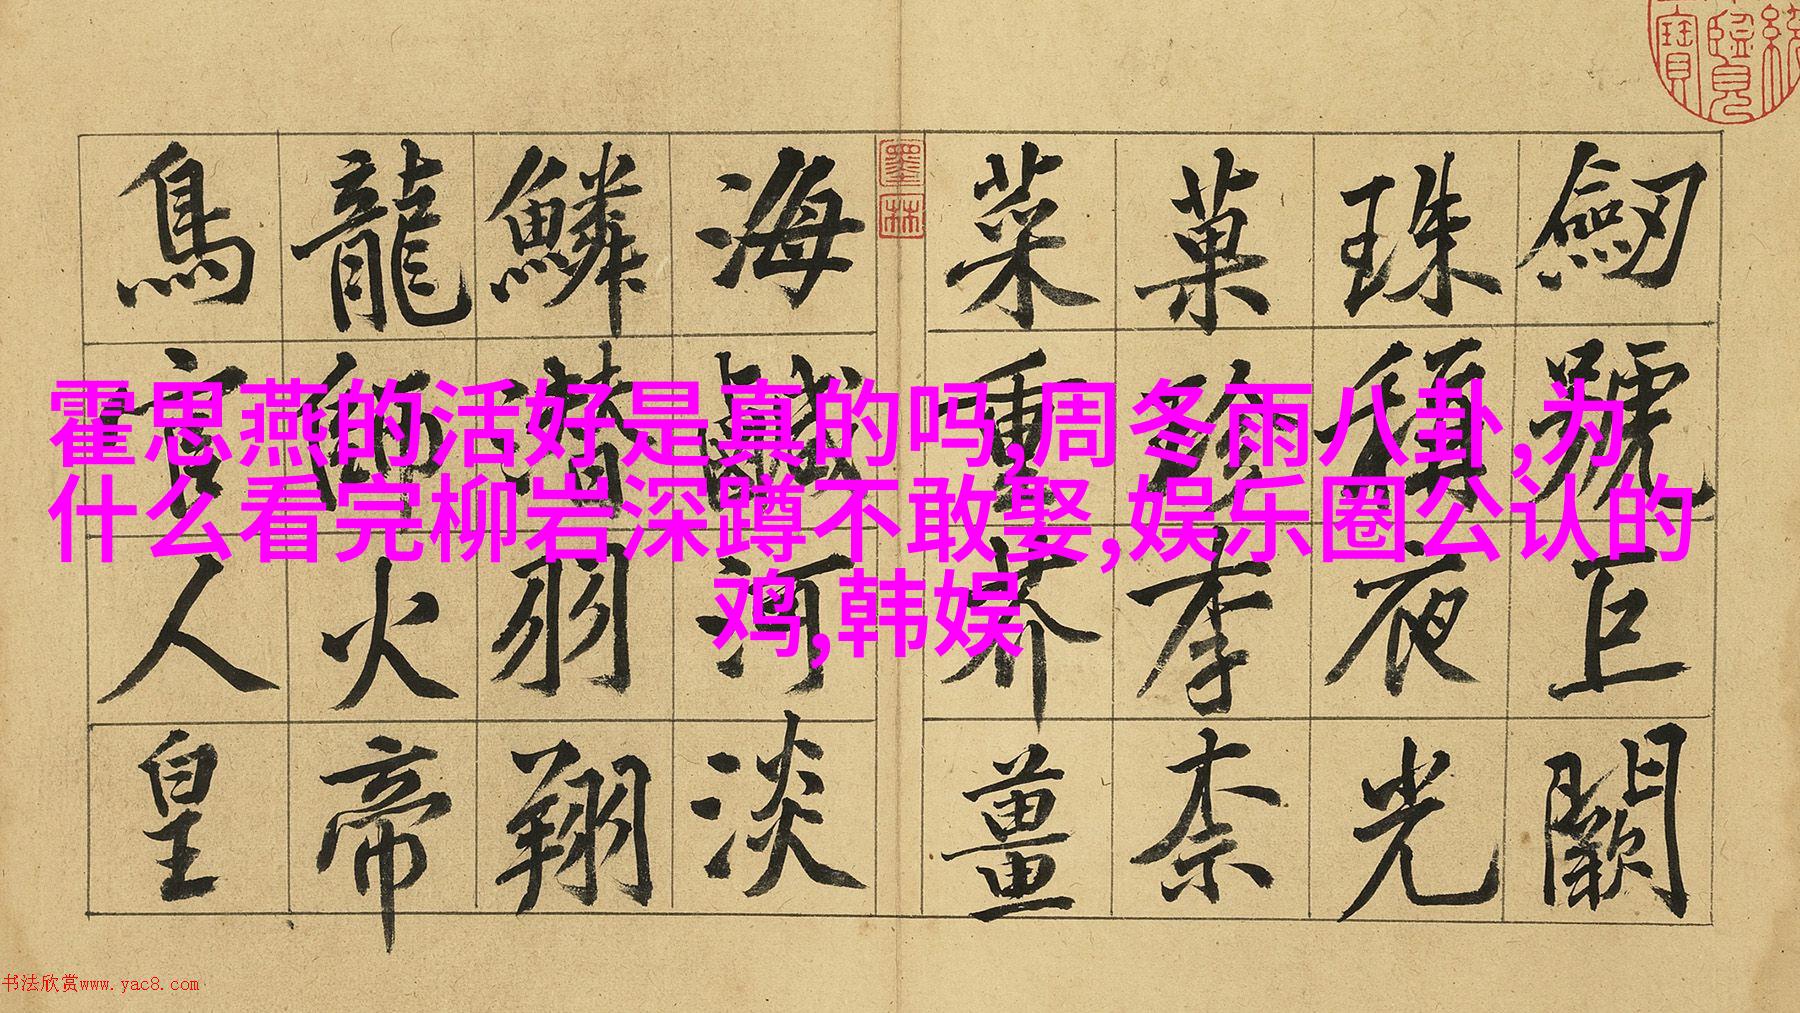 劔號巨闕
珠稱夜光
菓珍李柰
菜重芥薑
海鹹河淡
鱗潛羽翔
龍師火帝
鳥官人皇
墨林
霍思燕的活好是真的吗,周冬雨八卦,为
什么看完柳岩深蹲不敢娶,娱乐圈公认的
鸡,韩娱
书法欣赏www.yac8.com